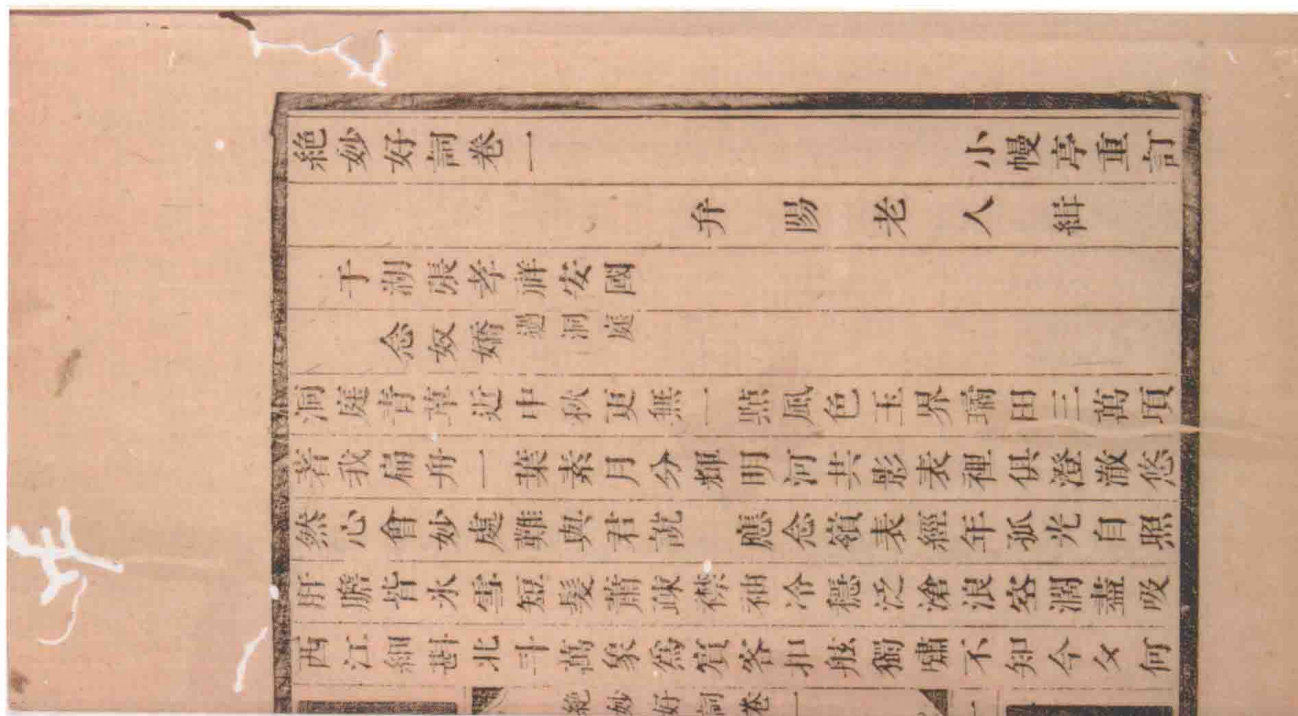 絶妙好詞卷一 小幔亭重訂
弁陽老人緝
于湖張孝祥安國
念奴嬌 過洞庭
洞庭青草近中秋更無一點風色玉界瓊田三萬頃
著我扁舟一葉素月分輝明河共影表裡俱澄澈悠
然心會妙處難與君說 應念嶺表經年孤光自照
肝膽皆氷雪短髮蕭疎襟袖冷穩泛滄浪空濶盡吸
西江細斟北斗萬象爲賓客扣舷獨嘯不知今夕何
絶妙好詞卷一 一